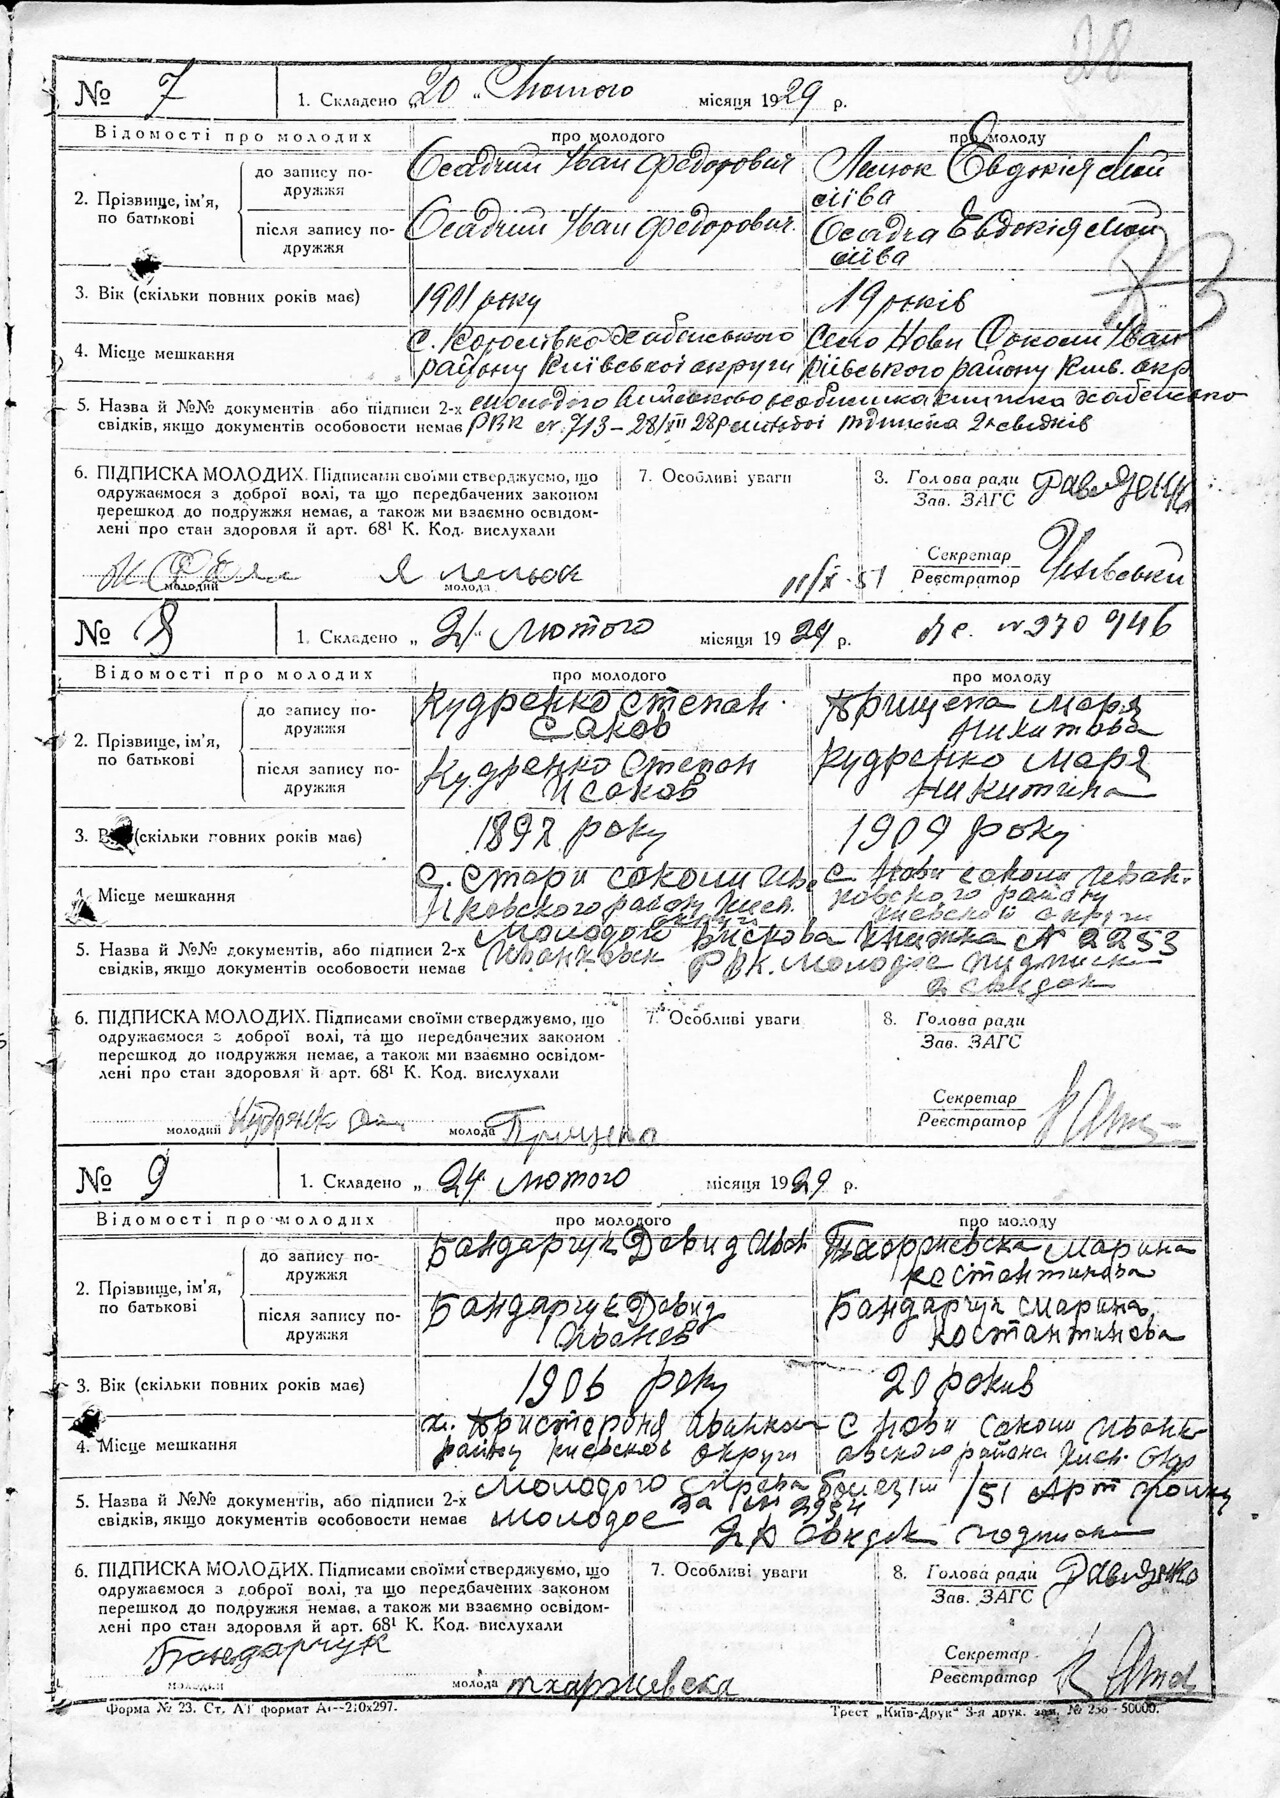 28
№ 7 1. Складено „20" Лютого місяця 1929 р.
Відомості про молодих про молодого про молоду
2. Прізвище, ім'я, по батькові
до запису подружжя
Осадчий Іван Федорович
Лелюк Евдокія Мой
сіїва
після запису подружжя
Осадчий Іван Федорович.
Осадча Евдокія Мой
сіїва
3. Вік (скільки повних років має) 1901 року 19 років
4. Місце мешкання
с. Королівка Хабенського
району Київської округи
Село Нови Соколи Іван
ківського району Київ. окр
5. Назва й №№ документів або підписи 2-х
свідків, якщо документів особовости немає
молодого Військово Хабенсько
РВК № 713-28/VII 28р молодої підписка 2х свідків
6. ПІДПИСКА МОЛОДИХ. Підписами своїми стверджуємо, що
одружаємося з доброї волі, та що передбачених законом
перешкод до подружжя немає, а також ми взаємно освідом-
лені про стан здоровля й арт. 68¹ К. Код. вислухали
7. Особливі уваги
3. Голова ради
Зав. ЗАГС
Секретар
Реєстратор
молодий
Я лелюк
молода
№ 8 1. Складено „21" лютого місяця 1929 р.
№ 270946
Відомості про молодих про молодого про молоду
2. Прізвище, ім'я, по батькові
до запису подружжя
Кудренко Степан
Саков
Прищепа Маря
Никитова
після запису подружжя
Кудренко Степан
Исаков
Кудренко Маря
Никитична
3. Вік (скільки повних років має) 1897 року 1909 року
4. Місце мешкання
с. Стари соколи Ив.
нковского району Киев.
округи
с Нови соколи Иван-
ковского району
киевской округи
5. Назва й №№ документів, або підписи 2-х
свідків, якщо документів особовости немає
Молодой Вискова Книжка № 2253
РВК. молодое пидписка
2 свидок
6. ПІДПИСКА МОЛОДИХ. Підписами своїми стверджуємо, що
одружаємося з доброї волі, та що передбачених законом
перешкод до подружжя немає, а також ми взаємно освідом-
лені про стан здоровля й арт. 68¹ К. Код. вислухали
7. Особливі уваги
8. Голова ради
Зав. ЗАГС
Секретар
Реєстратор
молодий
молода Прищепа
№ 9 1. Складено „24 лютого місяця 1929 р.
Відомості про молодих про молодого про молоду
2. Прізвище, ім'я, по батькові
до запису подружжя
Бандарчук Давид Иван
Тхоржевска Марина
костантинова
після запису подружжя
Бандарчук Давид
Иванев
Бандарчук Марина
костантинова
3. Вік (скільки повних років має) 1906 року 20 рокив
4. Місце мешкання
району киевской округи
с Нови соколи Иванк-
овского района Киев. Окр
5. Назва й №№ документів, або підписи 2-х
свідків, якщо документів особовости немає
Молодого /51 Арт
за № 2954
молодое 2х Свидок подписка
6. ПІДПИСКА МОЛОДИХ. Підписами своїми стверджуємо, що
одружаємося з доброї волі, та що передбачених законом
перешкод до подружжя немає, а також ми взаємно освідом-
лені про стан здоровля й арт. 68¹ К. Код. вислухали
7. Особливі уваги
8. Голова ради
Зав. ЗАГС
Секретар
Реєстратор
Бандарчук
молодий
молода тхоржевска
Форма № 23. Ст. А1 формат А4—210х297.
Трест „Київ-Друк" 3-я друк. зам. № 256 - 50000.